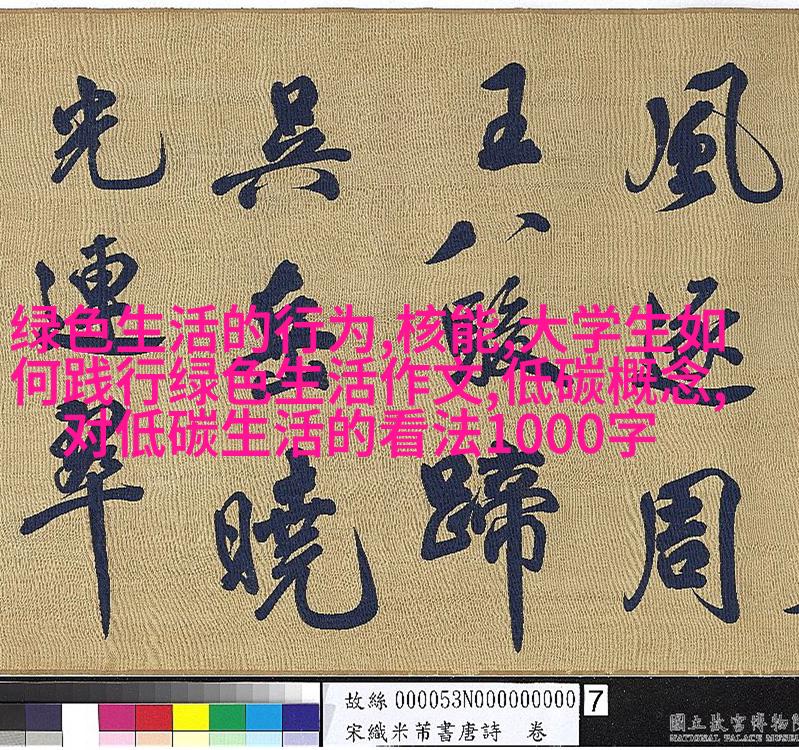 風逐周
王八駿蹄
吳岳曉
光連翠
绿色生活的行为,核能,大学生如
何践行绿色生活作文,低碳概念,
对低碳生活的看法1000字
故絲000053N000000000 7
宋織米芾書唐詩 卷
國立故宮博物院
NATIONAL PALACE MUSEUM